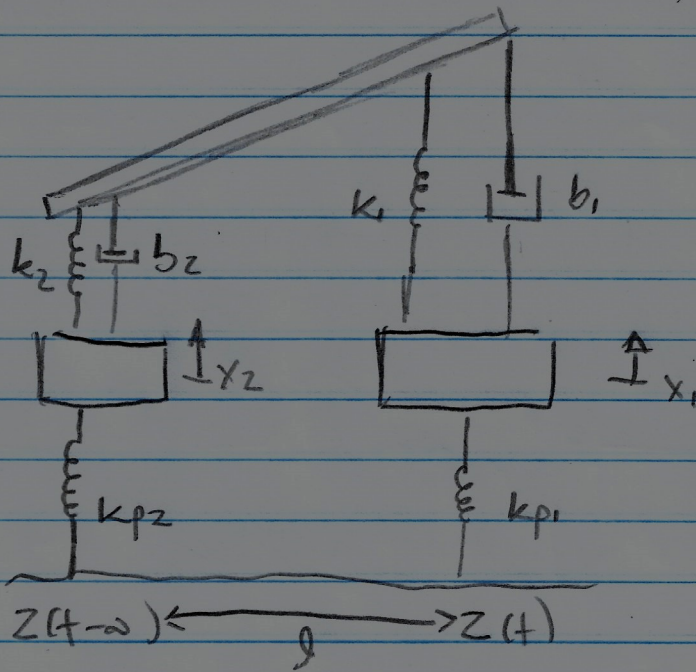 k₁ b₁
k₂ b₂
x₂ x₁
kp₂ kp₁
Z(t-∞) l Z(t)